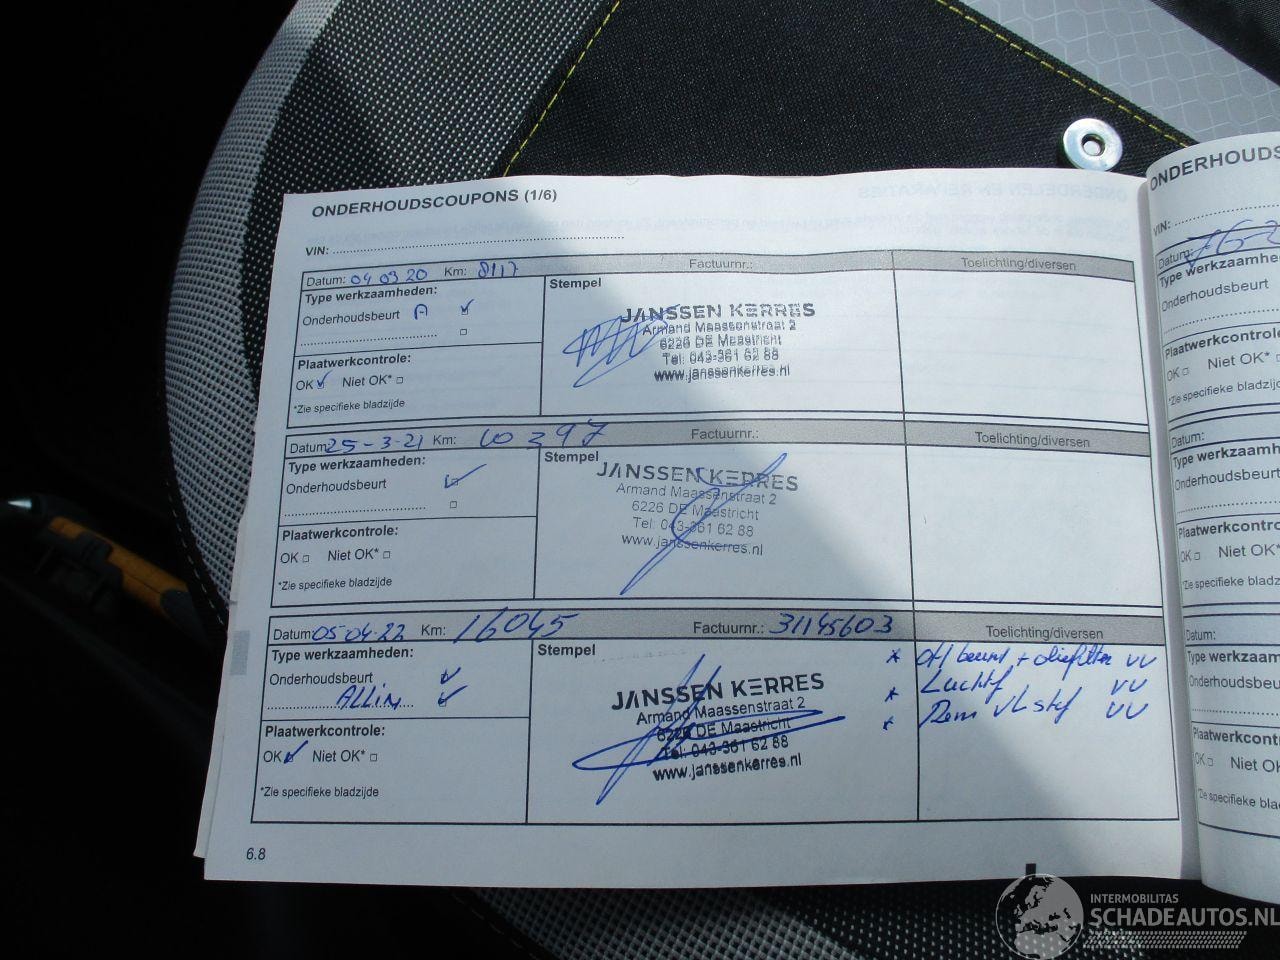 ONDERHOUDSCOUPONS (1/6)
VIN:
Datum: 04 03 20 Km: 8117 Factuurnr.: Toelichting/diversen
Type werkzaamheden: Stempel
Onderhoudsbeurt A
Plaatwerkcontrole:
OK Niet OK*
*Zie specifieke bladzijde
JANSSEN KERRES
Armand Maassenstraat 2
6226 DE Maastricht
Tel: 043-361 62 88
www.janssenkerres.nl
Datum: 25-3-21 Km: 10397 Factuurnr.: Toelichting/diversen
Type werkzaamheden: Stempel
Onderhoudsbeurt
Plaatwerkcontrole:
OK Niet OK*
*Zie specifieke bladzijde
JANSSEN KERRES
Armand Maassenstraat 2
6226 DE Maastricht
Tel: 043-361 62 88
www.janssenkerres.nl
Datum: 05-04-22 Km: 16045 Factuurnr.: 31145603 Toelichting/diversen
Type werkzaamheden: Stempel
Onderhoudsbeurt
ALLIN
Plaatwerkcontrole:
OK Niet OK*
*Zie specifieke bladzijde
JANSSEN KERRES
Armand Maassenstraat 2
6226 DE Maastricht
Tel: 043-361 62 88
www.janssenkerres.nl
* OH beurt + oliefilter VV
* Luchtf VV
* Rem VLstf VV
6.8
ONDERHOUDS
VIN:
Datum:
Type werkzaamhede
Onderhoudsbeurt
Plaatwerkcontrole
OK Niet OK*
*Zie specifieke bladzijd
Datum:
Type werkzaamh
Onderhoudsbeurt
Plaatwerkcontro
OK Niet OK*
*Zie specifieke bladz
Datum:
Type werkzaam
Onderhoudsbeu
Plaatwerkcont
OK Niet O
*Zie specifieke bla
INTERMOBILITAS
SCHADEAUTOS.NL